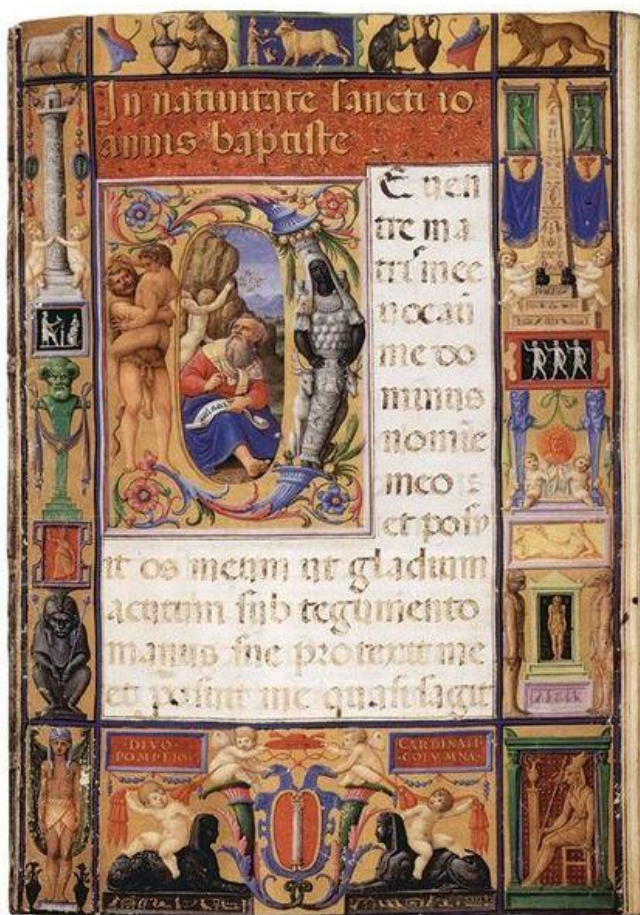 In natiuitate sancti io
annis baptiste
D E uen
tre ma
tris mee
uocaũ
me do
minus
nomĩe
meo :
et posu
it os meum ut gladium
acutum sub tegumento
manus sue protexit me
et posuit me quasi sagit
·DIVO·
POMPEIO·
CARDINALI
·COLVMNA·